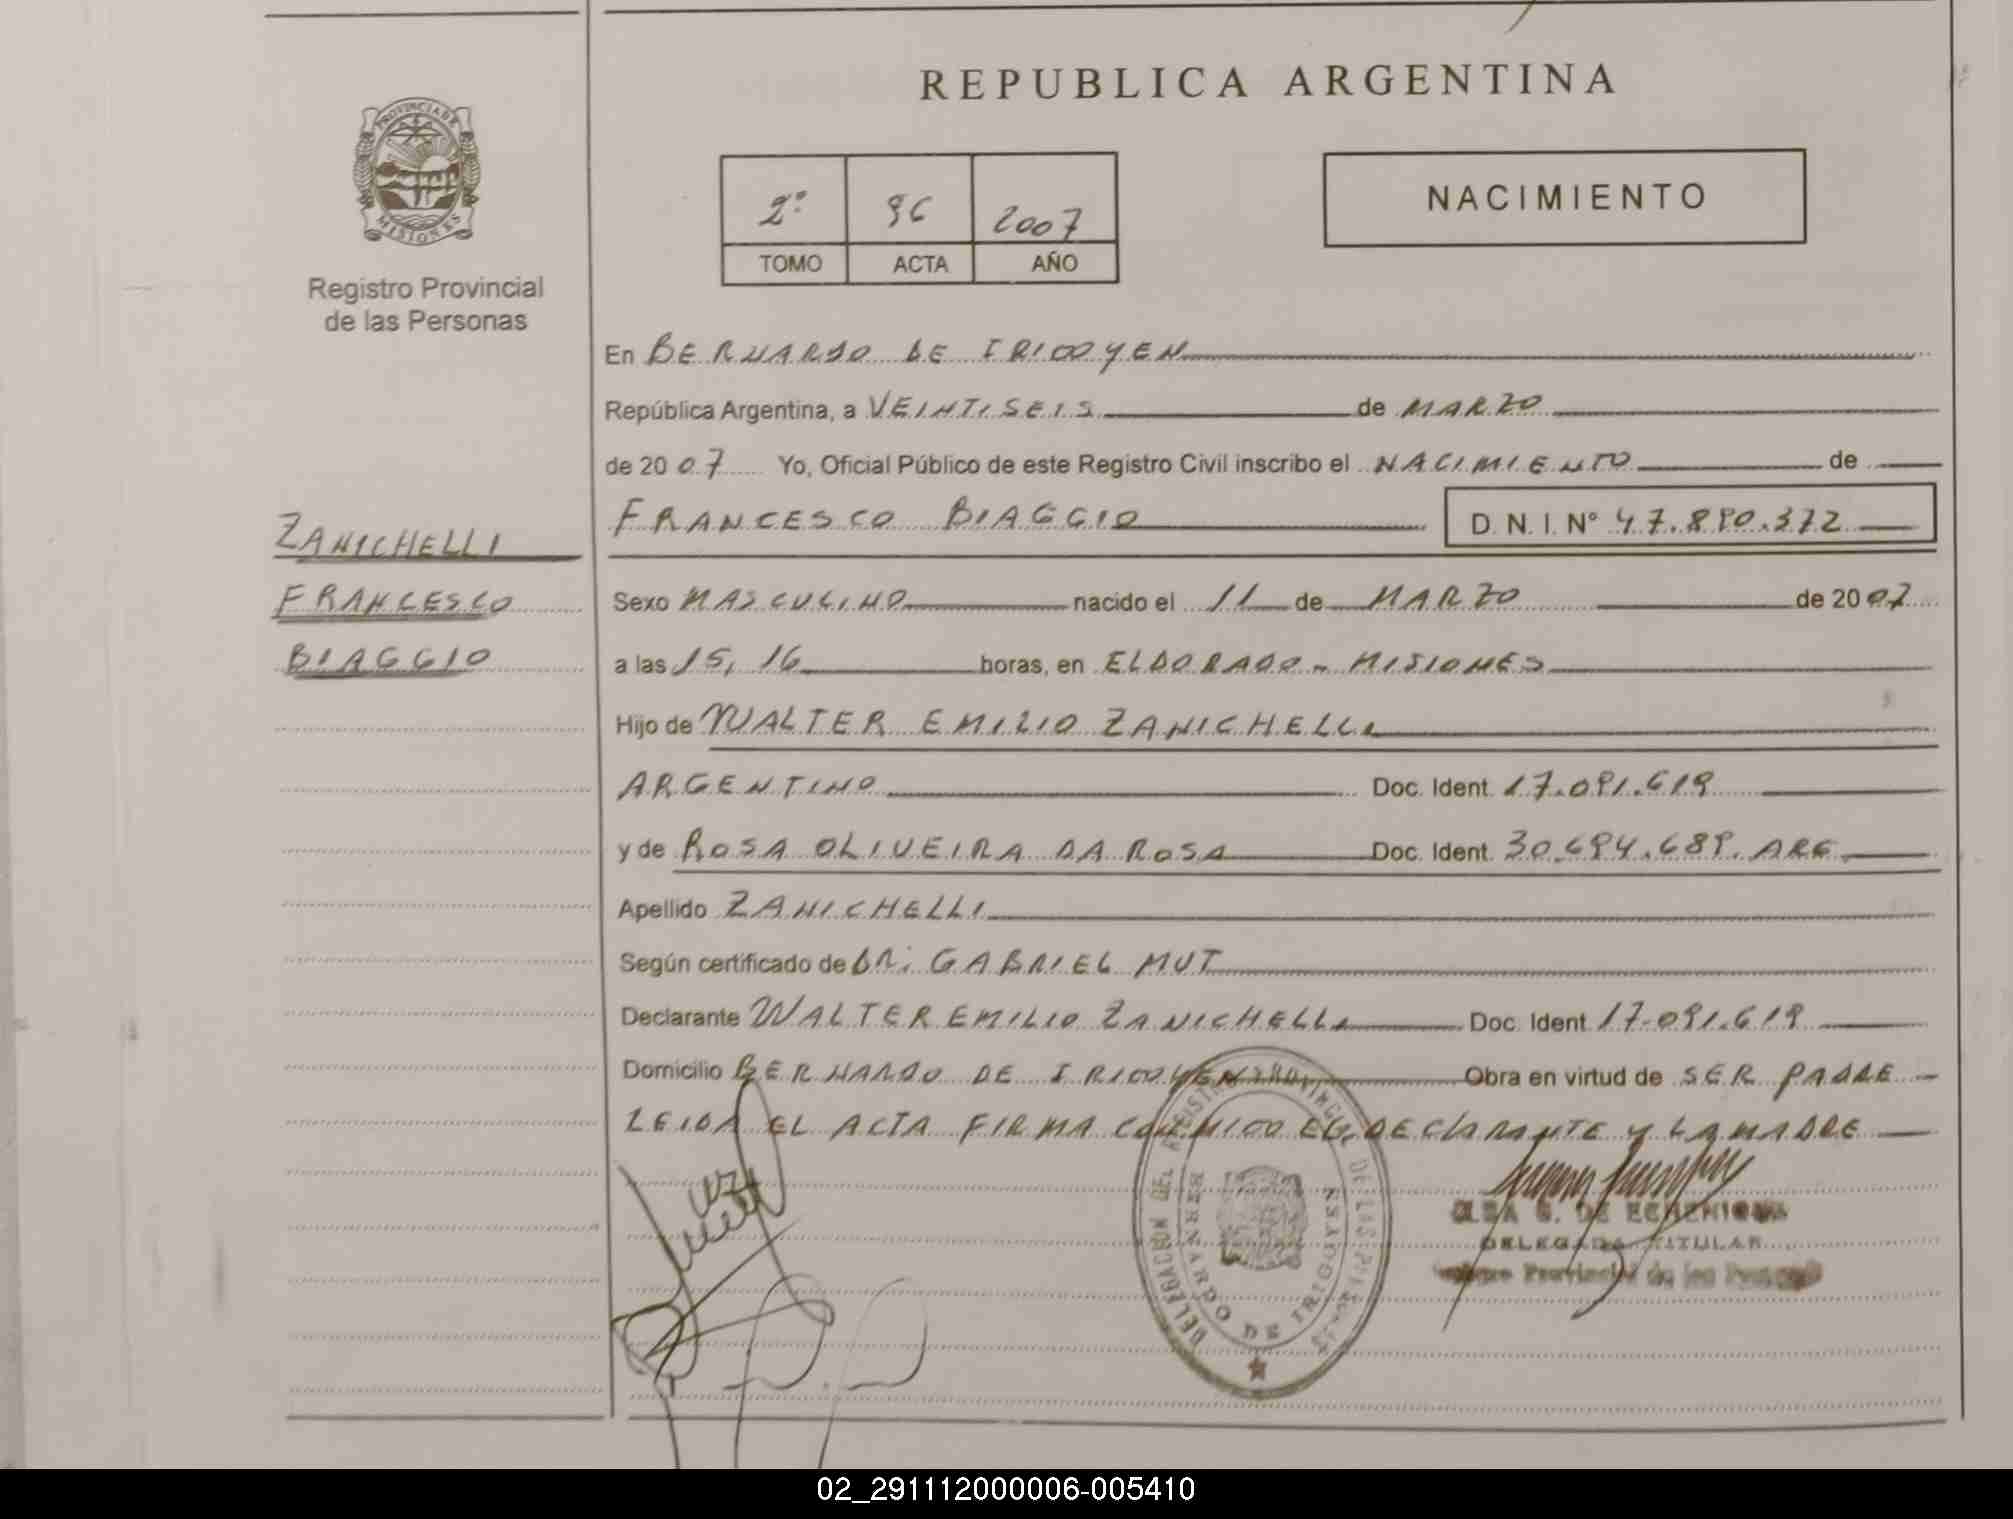 REPUBLICA ARGENTINA
PROVINCIA DE
MISIONES
Registro Provincial
de las Personas
2º 96 2007
TOMO ACTA AÑO
NACIMIENTO
En BERNARDO DE IRIGOYEN
República Argentina, a VEINTISEIS de MARZO
de 2007 Yo, Oficial Público de este Registro Civil inscribo el NACIMIENTO de
ZANICHELLI
FRANCESCO
BIAGGIO
FRANCESCO BIAGGIO D. N. I. Nº 47.890.372
Sexo MASCULINO nacido el 11 de MARZO de 2007
a las 15,16 horas, en ELDORADO - MISIONES
Hijo de WALTER EMILIO ZANICHELLI
ARGENTINO Doc. Ident. 17.091.619
y de ROSA OLIVEIRA DA ROSA Doc. Ident. 30.694.689. ARG.
Apellido ZANICHELLI
Según certificado de DR. GABRIEL MUT
Declarante WALTER EMILIO ZANICHELLI Doc. Ident 17.091.619
Domicilio BERNARDO DE IRIGOYEN Obra en virtud de SER PADRE
LEIDA EL ACTA FIRMA CONMIGO EL DECLARANTE Y LA MADRE
DELEGACION DEL REGISTRO PROVINCIAL DE LAS PERSONAS
BERNARDO DE IRIGOYEN
G. DE ECHENIQUE
DELEGADA TITULAR
Provincial de las Personas
02_291112000006-005410